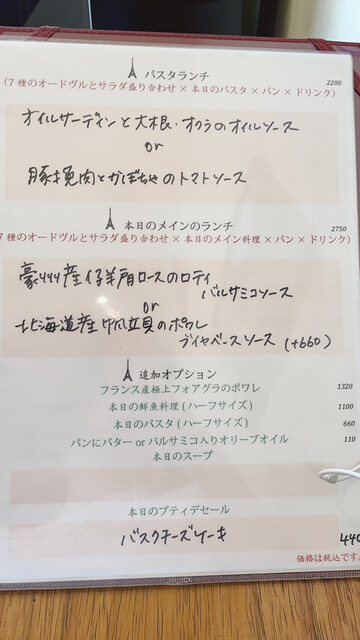 パスタランチ 2200
(7 種のオードヴルとサラダ盛り合わせ × 本日のパスタ × パン × ドリンク)
オイルサーディンと大根・オクラのオイルソース
or
豚挽肉とかぼちゃのトマトソース
本日のメインのランチ 2750
7 種のオードヴルとサラダ盛り合わせ × 本日のメイン料理 × パン × ドリンク)
豪州産仔羊肩ロースのロティ
バルサミコソース
or
北海道産帆立貝のポワレ
ディヤベースソース (+660)
追加オプション
フランス産極上フォアグラのポワレ 1320
本日の鮮魚料理 (ハーフサイズ) 1100
本日のパスタ (ハーフサイズ) 660
パンにバター or バルサミコ入りオリーブオイル 110
本日のスープ
本日のプティデセール
バスクチーズケーキ 440
価格は税込です。